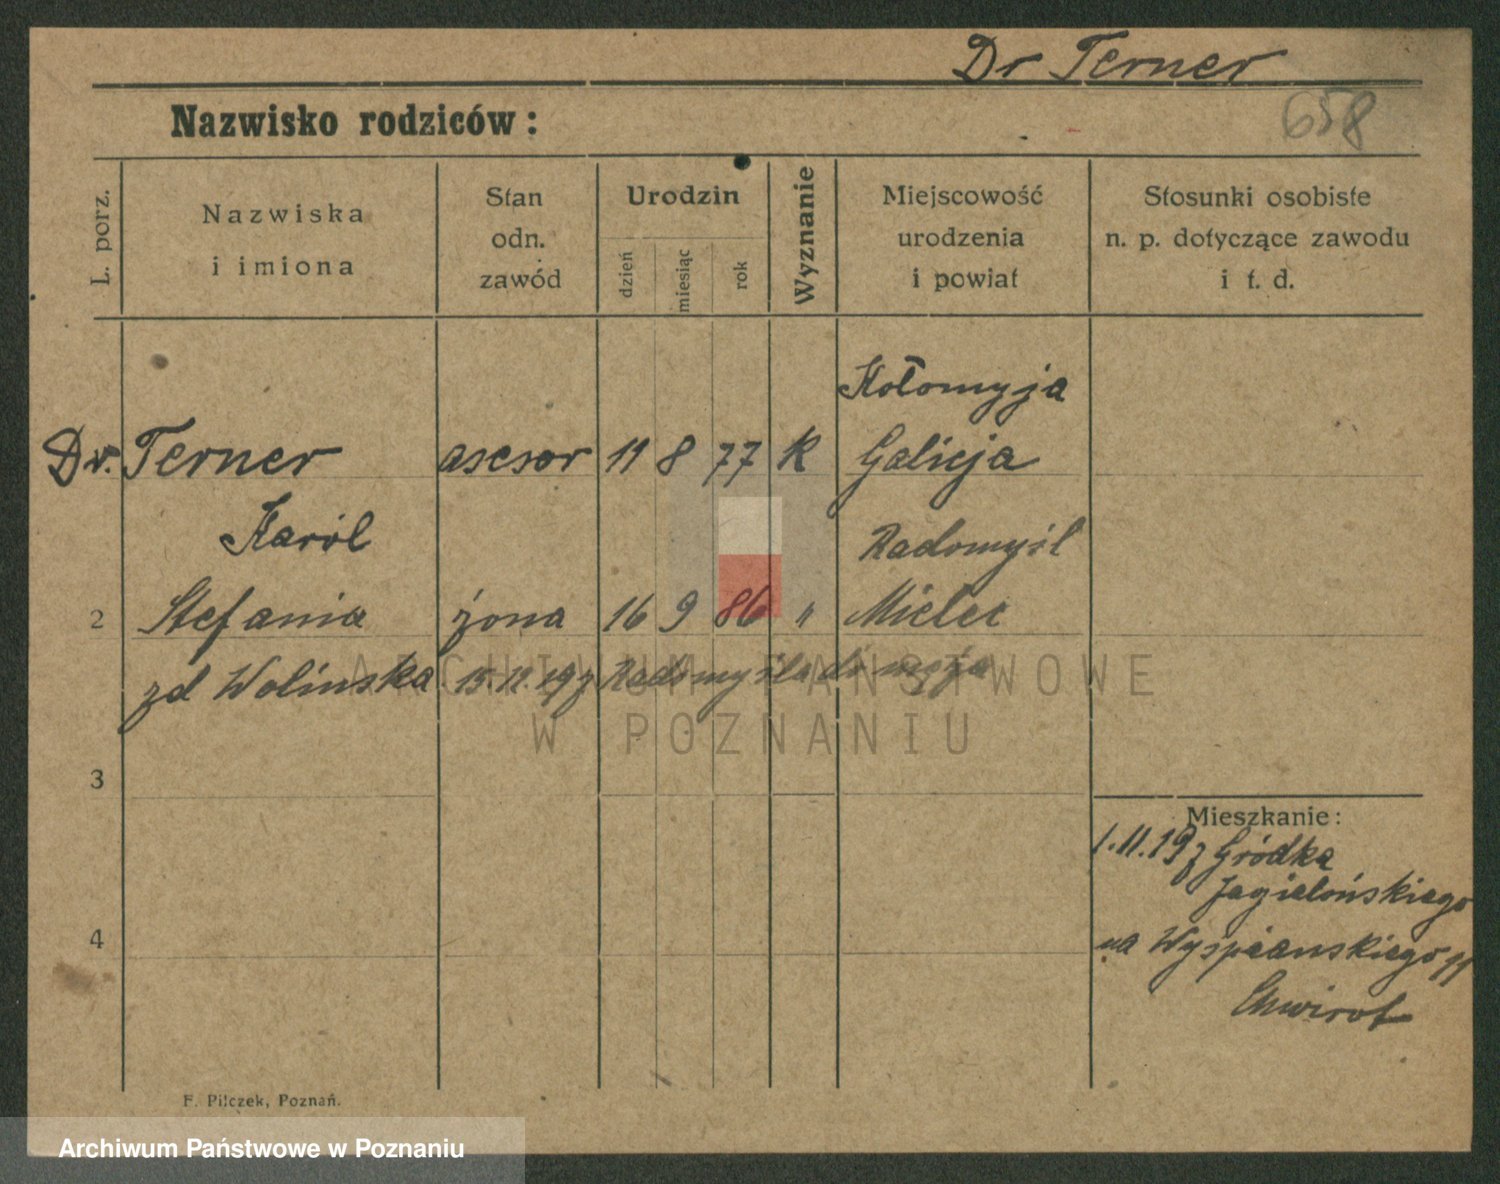 Dr Terner
Nazwisko rodziców :
658
L. porz.
Nazwiska
i imiona
Stan
odn.
zawód
Urodzin
dzień
miesiąc
rok
Wyznanie
Miejscowość
urodzenia
i powiat
Stosunki osobiste
n. p. dotyczące zawodu
i t. d.
Kołomyja
Dr. Terner asesor 11 8 77 K Galicja
Karól Radomyśl
2 Stefania żona 16 9 86 " Mielec
zd Wolinska 15.12.19 z Radomyśla do męża
ARCHIWUM PAŃSTWOWE
W POZNANIU
3
Mieszkanie :
1.11.19 z Gródka
Jagielońskiego
4
na Wyspianskiego 11
Chwirot
F. Pilczek, Poznań.
Archiwum Państwowe w Poznaniu